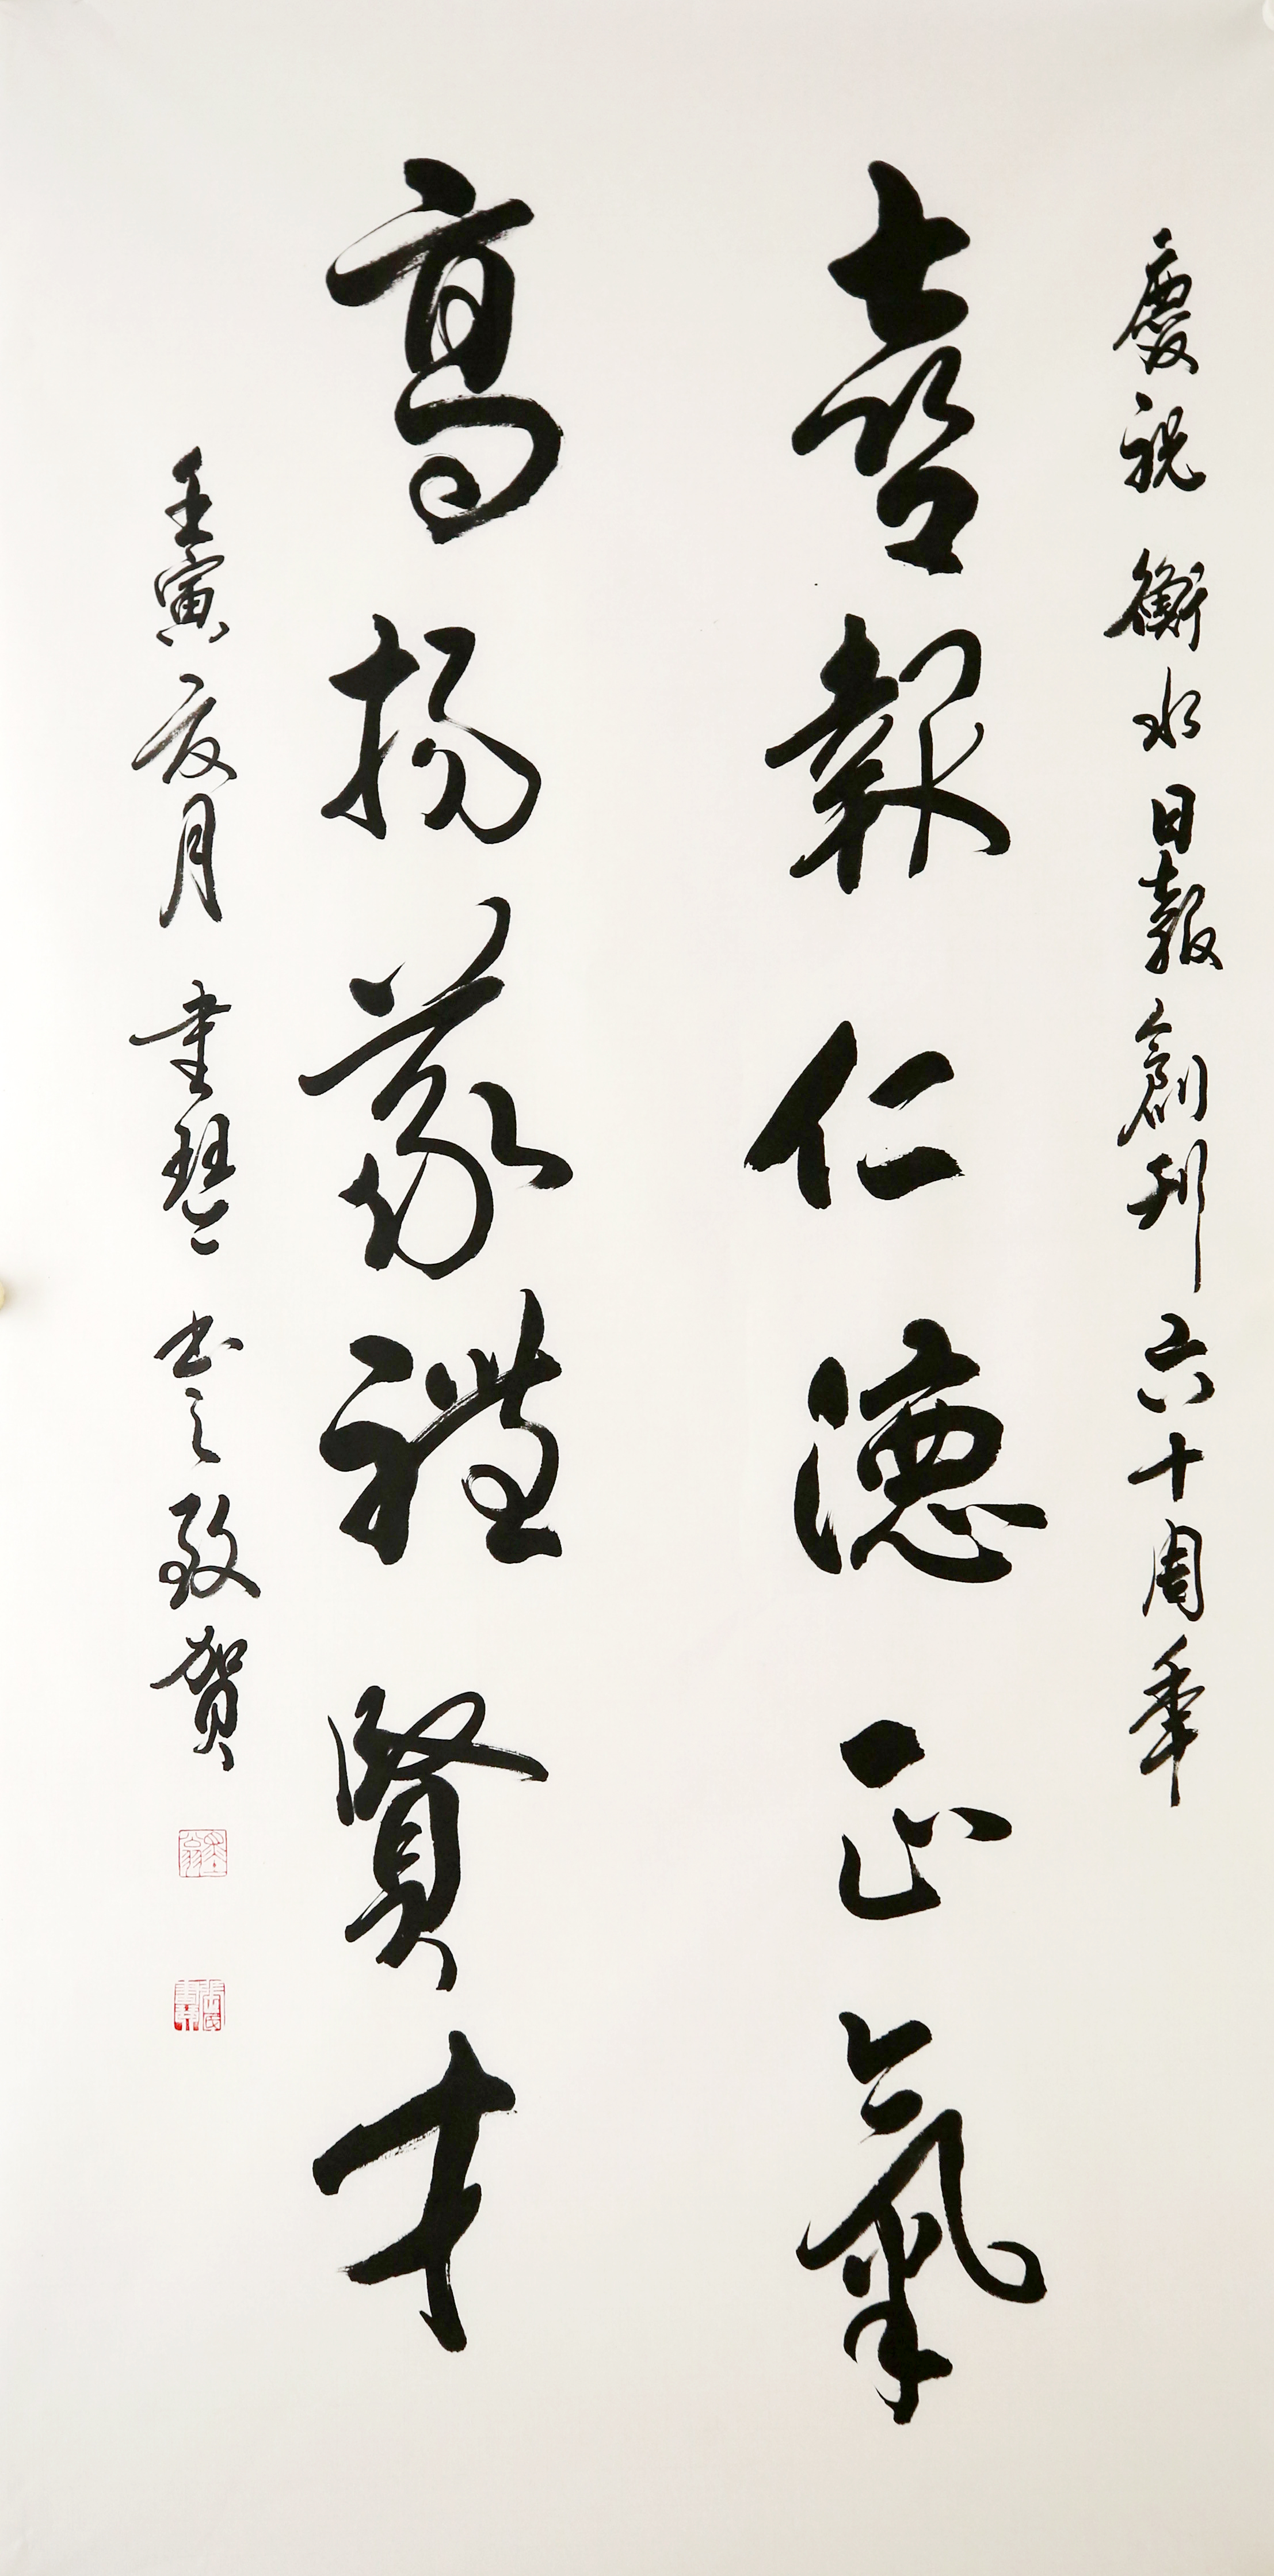 慶祝 衡水日報創刊六十周年
喜報仁德正氣
高揚義禮賢才
壬寅夏月 書琴 書之致賀